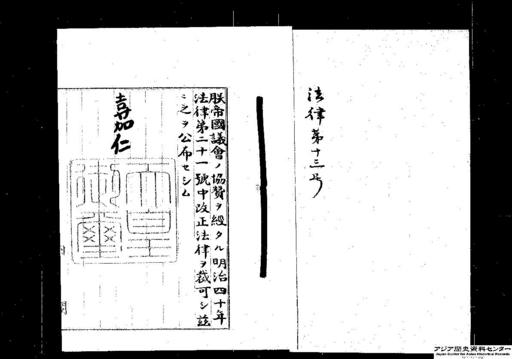 法律第十三号
朕帝國議會ノ協賛ヲ經タル明治四十年
法律第二十一號中改正法律ヲ裁可シ茲
ニ之ヲ公布セシム
嘉仁
天皇
御璽
内閣
アジア歴史資料センター
Japan Center for Asian Historical Records